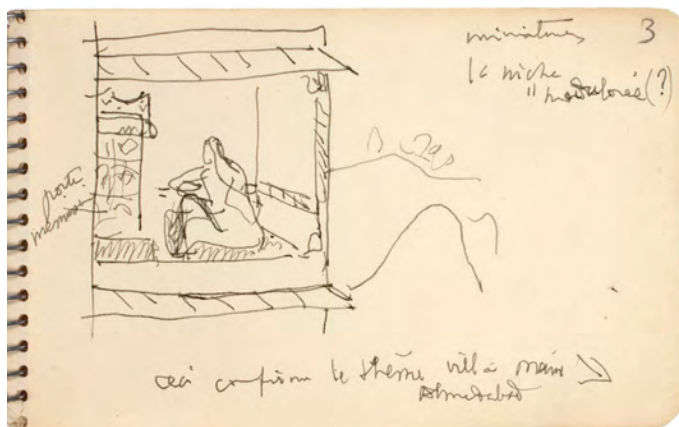 miniatures
3
la niche
"modulorée" (?)
porte
ceci confirme le thème villa
Ahmedabad